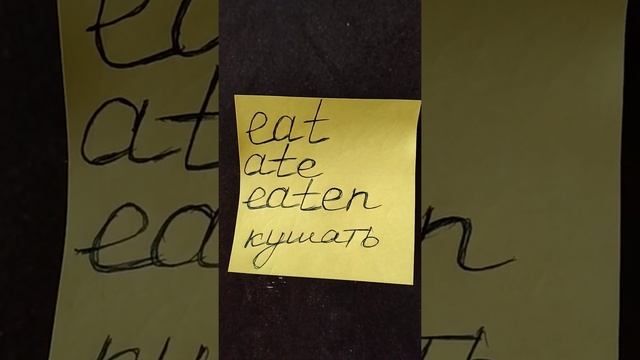 eat
ate
eaten
кушать